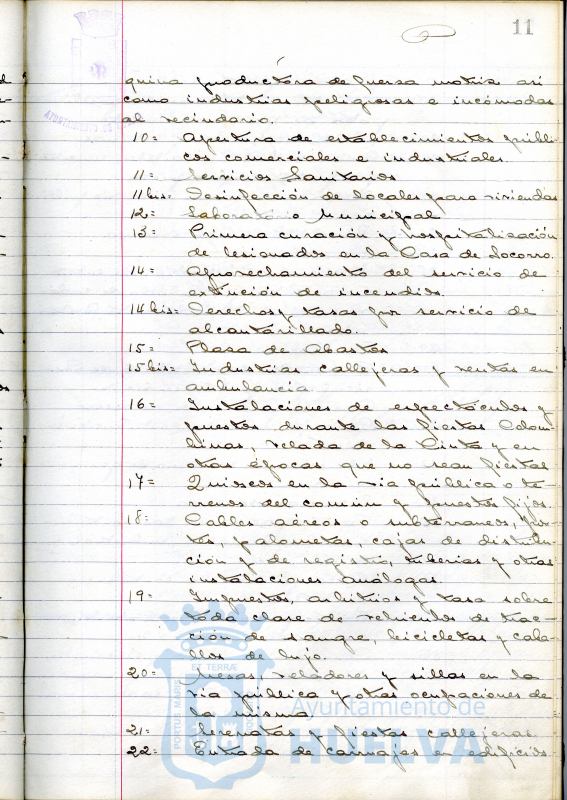 11
quina productora de fuersa motriz así
como industrias peligrosas e incómodas
al vecindario.
10= Apertura de establecimientos públi
cos comerciales e industriales.
11= Servicios Sanitarios
11 bis= Desinfección de locales para viviendas
12= Laboratorio Municipal
13= Primera curación y hospitalización
de lesionados en la Casa de Socorro.
14= Aprovechamiento del servicio de
extinción de incendios.
14 bis= Derechos y tasas por servicio de
alcantarillado.
15= Plasa de Abastos
15 bis= Industrias callejeras y ventas en
ambulancia
16= Instalaciones de espectáculos y
puestos durante las fiestas Colom
binas, velada de la Cinta y en
otras épocas que no sean fiestas
17= Quioscos en la vía pública o te-
rrenos del comun y puestos fijos.
18= Cables aéreos o subterraneos, pos-
tes, palometas, cajas de distribu-
ción y de registro, tuberias y otras
instalaciones análogas.
19= Impuestos, arbitrios y tasa sobre
toda clase de vehiculos de trac-
ción de sangre, bicicletas y caba-
llos de lujo.
20= Mesas, veladores y sillas en la
via pública y otras ocupaciones de
la misma
21= Serenatas y fiestas callejeras
22= Entrada de carruajes en edificios
PORTUS MARIS ET TERRÆ
Ayuntamiento de
HUELVA